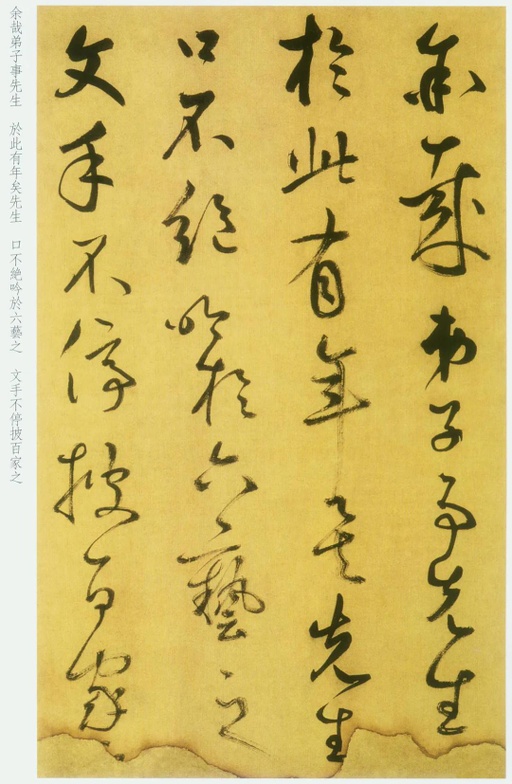 余哉弟子事先生
於此有年矣先生
口不绝吟於六藝之
文手不停披百家之
余哉弟子事先生 於此有年矣先生 口不绝吟於六藝之 文手不停披百家之